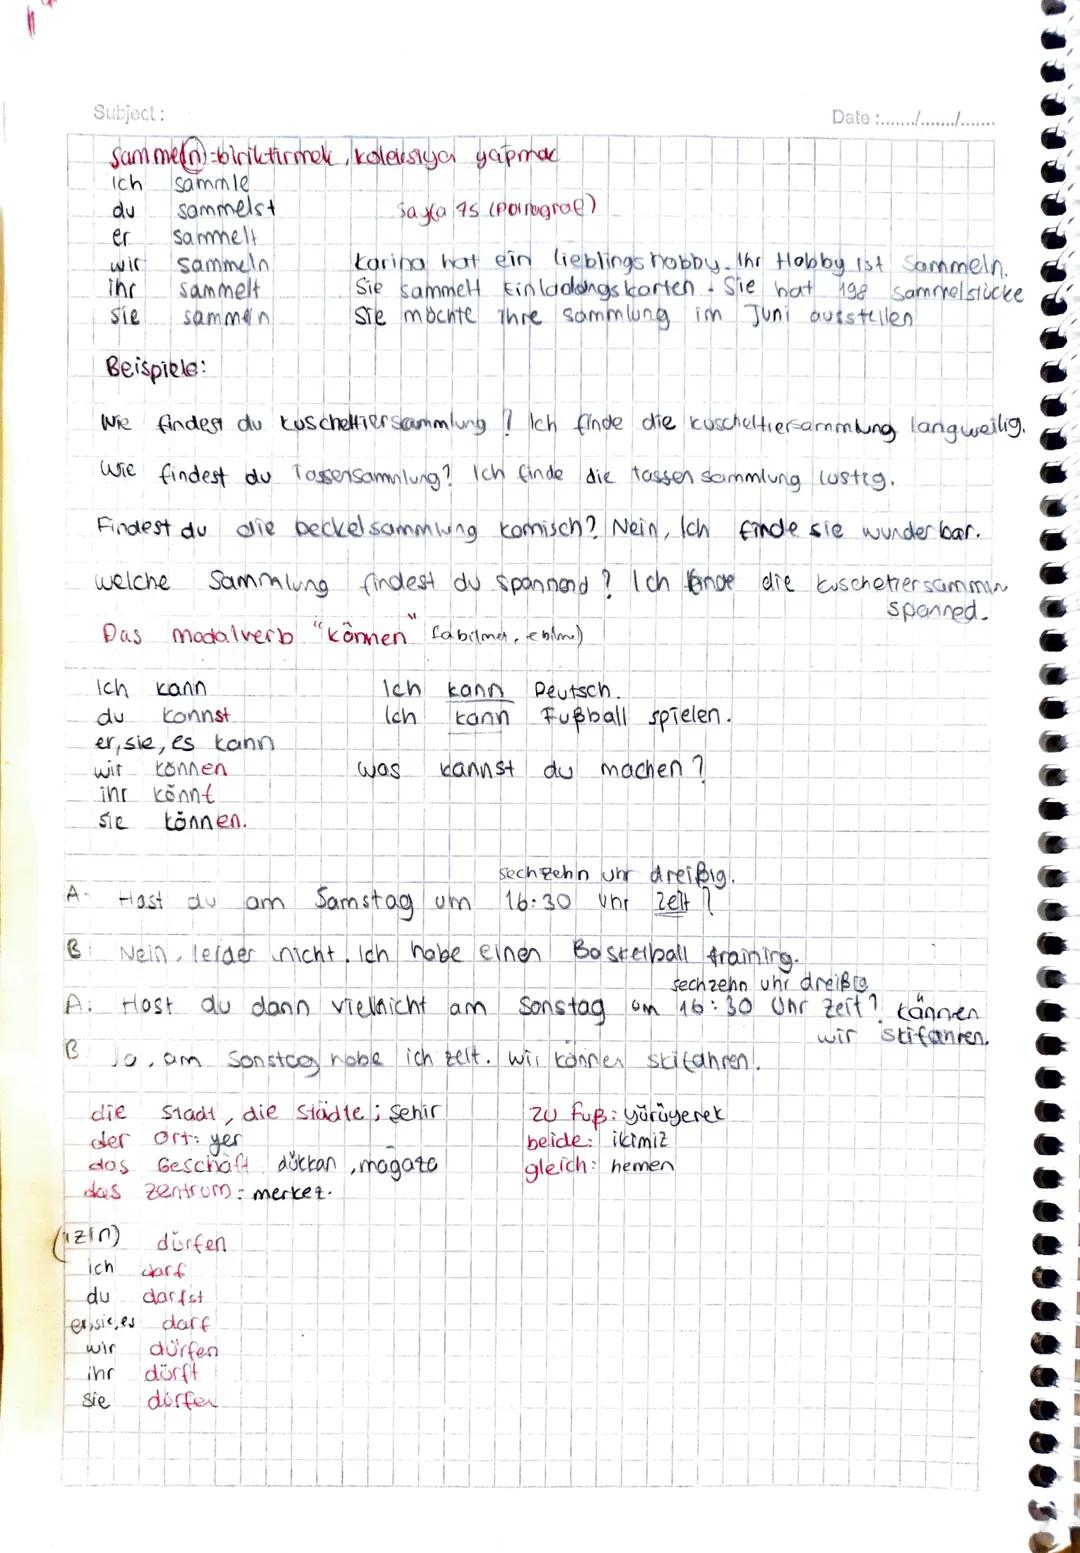 Subject :
Date :......./......../.......
Sammeln = biriktirmek, koleksiya yapmak
ich sammle
du sammelst
Sayfa 75 (Paragraf)
er sammelt
wir sammeln
Karina hat ein lieblingshobby. Ihr Hobby ist Sammeln.
ihr sammelt
Sie sammelt Einladungskarten. Sie hat 198 Sammelstücke
sie sammeln
Sie möchte ihre Sammlung im Juni ausstellen
Beispiele:
Wie findest du kuscheltiersammlung ? Ich finde die kuscheltiersammlung langweilig.
Wie findest du Tassensammlung? Ich finde die tassensammlung lustig.
Findest du die Deckelsammlung komisch? Nein, Ich finde sie wunderbar.
welche Sammlung findest du spannend ? Ich finde die
spanned.
Das modalverb "können" (abilmek, ebilme)
Ich kann
Ich kann Deutsch.
du konnst
Ich kann Fußball spielen.
er, sie, es kann
wir können
was kannst du machen ?
ihr könnt
sie können.
sechzehn uhr dreißig.
A- Hast du am Samstag um 16:30 Uhr Zeit ?
B: Nein, leider nicht. Ich habe einen Basketball training.
sechzehn uhr dreißig
A: Hast du dann vielleicht am Sonstag um 16:30 Uhr Zeit? können
wir skifahren.
B Ja, am Sonstag habe ich zeit. Wir können skifahren.
die Stadt, die Städte; şehir
zu Fuß: yürüyerek
der Ort: yer
beide: ikimiz
das Geschäft dükkan, mağaza
gleich: hemen
das Zentrum: merkez.
(izin) dürfen
ich darf
du darfst
er, sie, es darf
wir dürfen
ihr dürft
sie dürfen